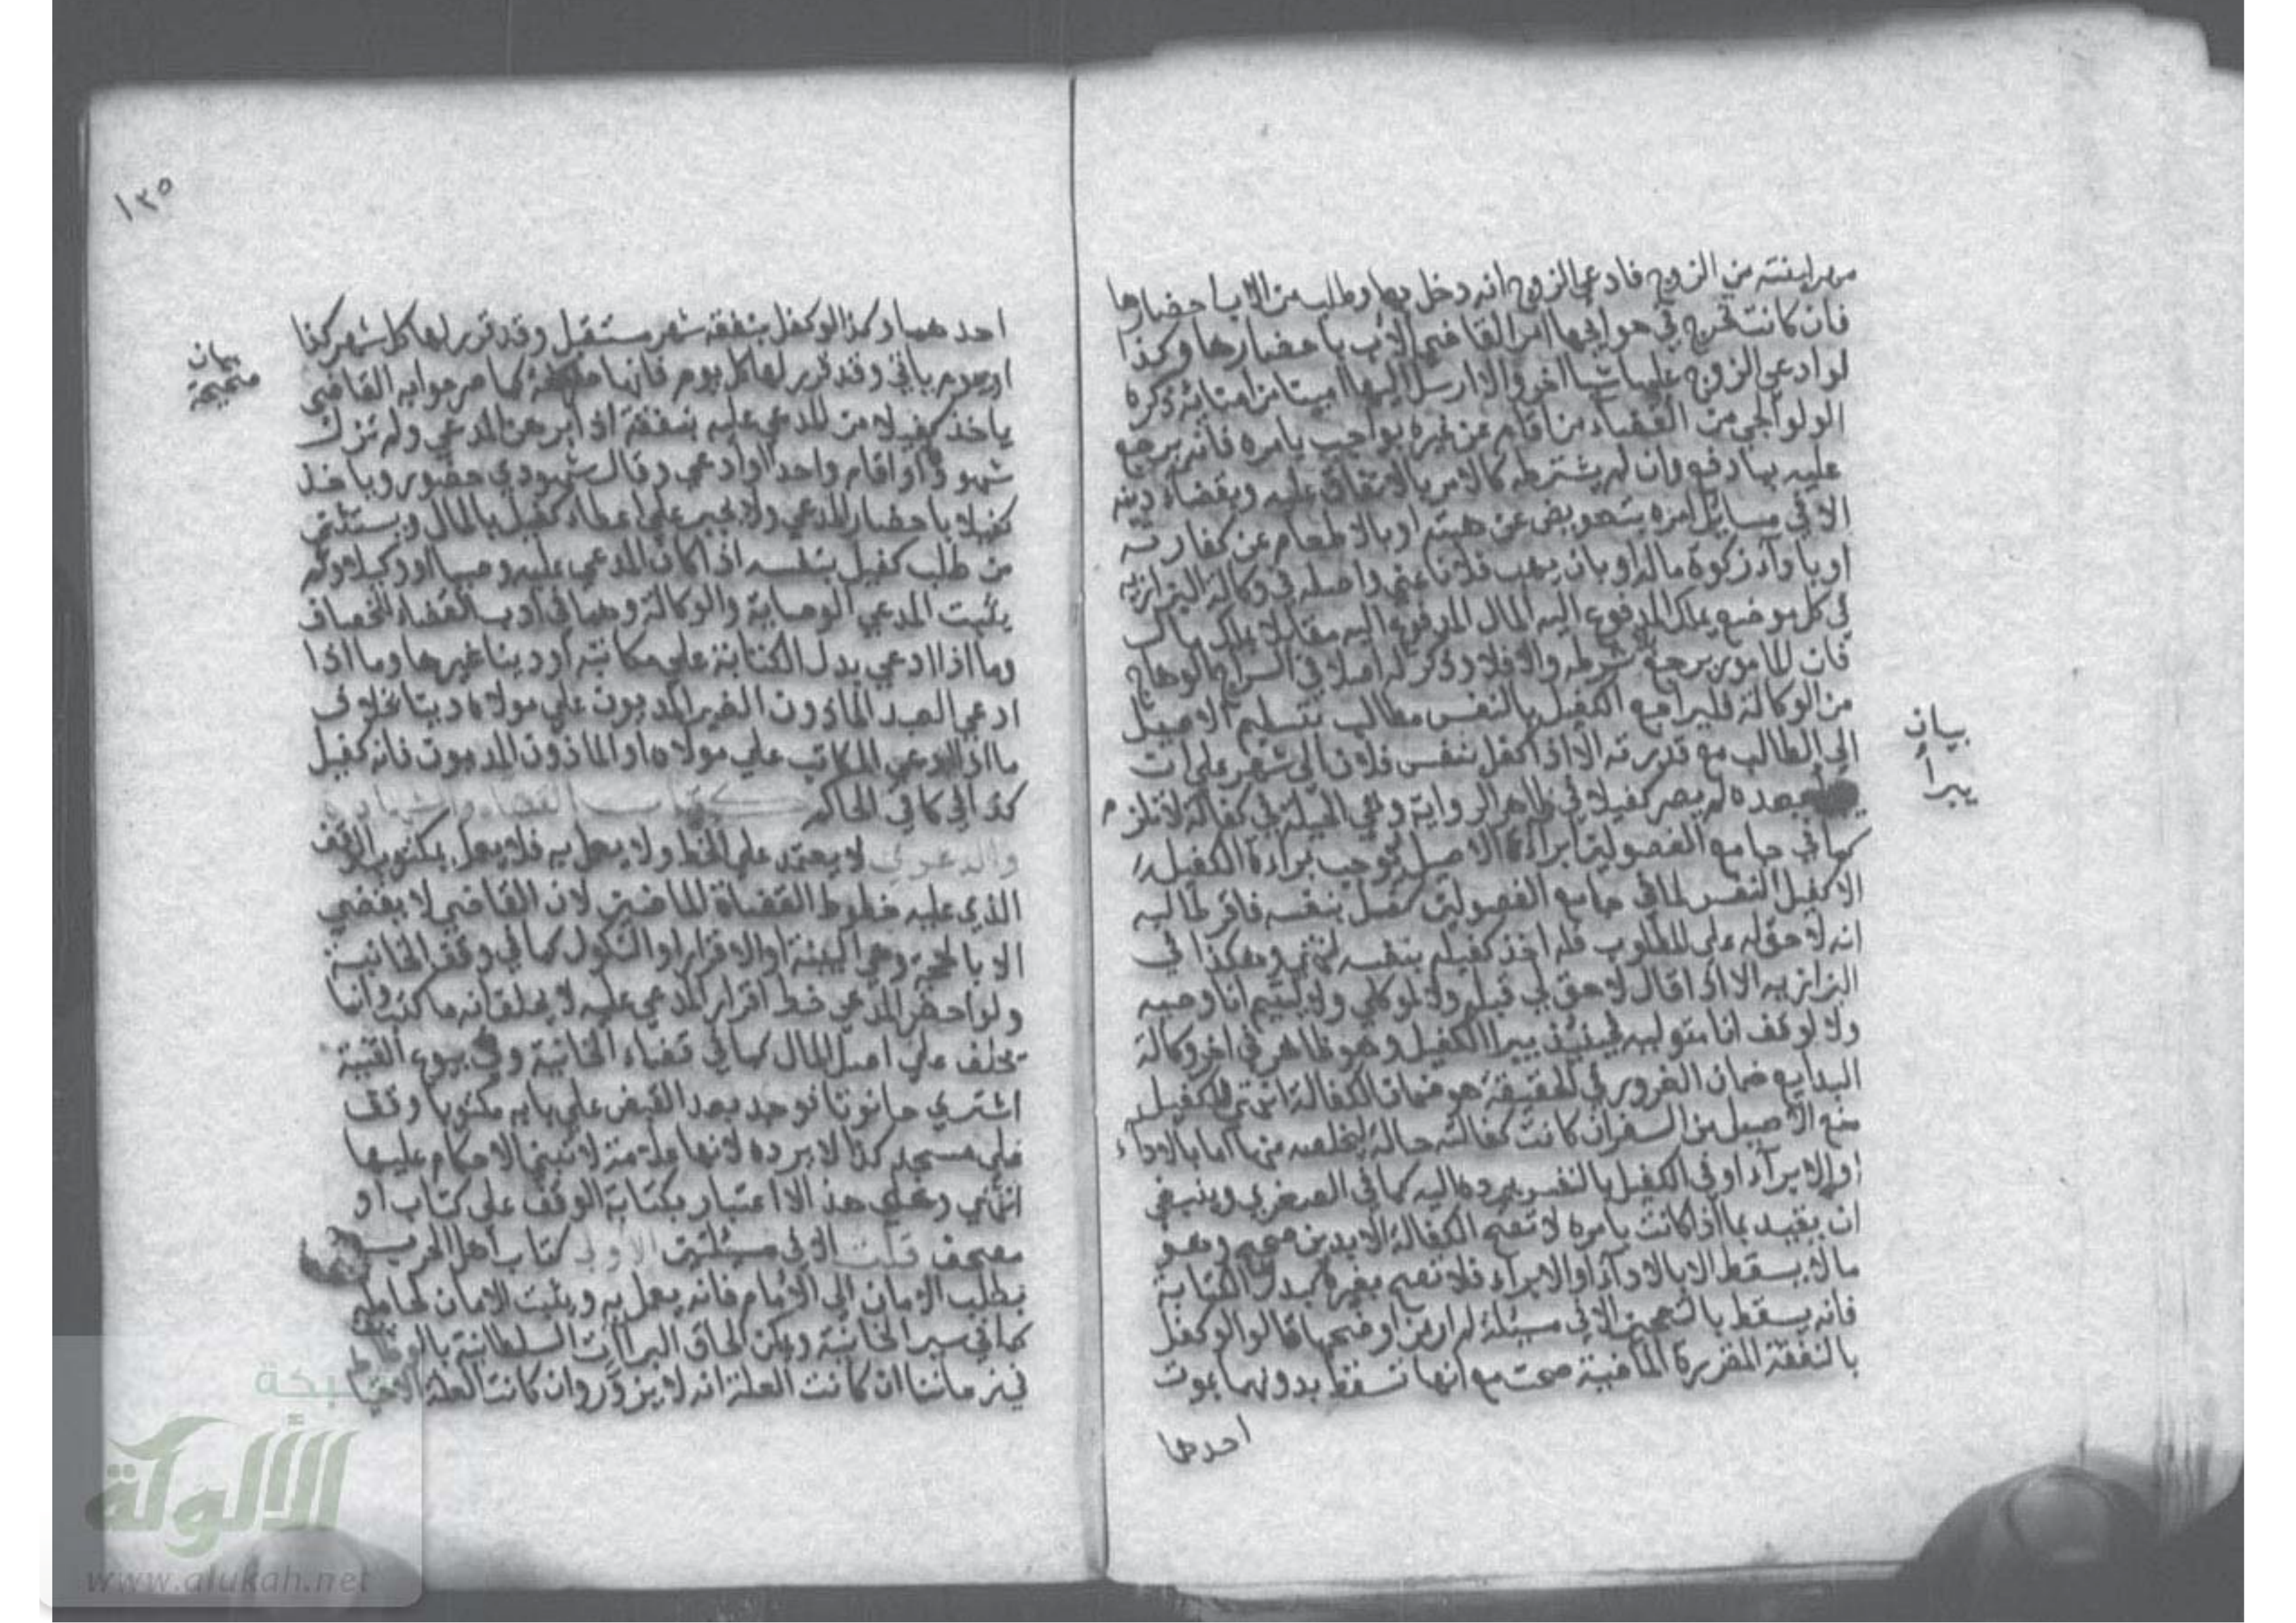 مهر ابنته من الزوج فادعي الزوج انه دخل بها وطلب من الاب احضارها
فان كانت تخرج في حوايجها امر القاضي الاب باحضارها وكذا
لو ادعي الزوج عليها شيا اخر والا ارسل اليها امينا من امنايه ذكره
الولوالجي من القضاء من قام عن غيره بواجب بامره فانه يرجع
عليه بما دفع وان لم يشترطه كالامر بالانفاق عليه وبقضاء دينه
الا في مسايل امره بتعويض عن هبته او بالاطعام عن كفارته
او باداء زكوة ماله او بان يهب فلانا عني واصله في وكالة البزازيه
في كل موضع يملك المدفوع اليه المال المدفوع اليه مقابلا بملك مال
فان المامور يرجع بلا شرط والا فلا وذكر له اصلا في السراج الوهاج
من الوكالة فليراجع الكفيل بالنفس مطالب بتسليم الاصيل
الي الطالب مع قدرته الا اذا كفل بنفس فلان الي شهر علي ان
بعده لم يصر كفيلا في ظاهر الرواية وهي الحيلة في كفالة لا تلزم
كما في جامع الفصولين ابراء الاصيل يوجب براءة الكفيل
الا كفيل النفس لما في جامع الفصولين كفل بنفسه فاقر طالبه
انه لا حق له علي المطلوب فله اخذ كفيله بنفسه انتهي وهكذا في
البزازيه الا اذا قال لا حق لي قبله ولا لموكلي ولا ليتيم انا وصيه
ولا لوقف انا متوليه فحينئذ يبرا الكفيل وهو ظاهر في اخر وكالة
البدايع ضمان الغرور في الحقيقة هو ضمان الكفالة انتهي للكفيل
منع الاصيل من السفر ان كانت كفالته حالة ليخلصه منها اما بالاداء
او الابراء او في الكفيل بالنفس يرده اليه كما في الصغري وينبغي
ان يقيد بما اذا كانت بامره لا تصح الكفالة الا بدين صحيح وهو
ما لا يسقط الا بالاداء او الابراء فلا تصح بغيره كبدل الكتابة
فانه يسقط بالتعجيز الا في مسيلة لم ار من اوضحها قالوا لو كفل
بالنفقة المقررة الماضية صحت مع انها تسقط بدونهما بموت
احدهما
بيان
يبرأ
١٣٥
احدهما وكذا لو كفل بنفقة شهر مستقبل وقد قرر لها كل شهر كذا
او يوم ياتي وقد قرر لها كل يوم فانها صحيحة كما صرحوا به القاضي
ياخذ كفيلا من المدعي عليه بنفسه اذا برهن المدعي ولم تزك
شهوده او اقام واحدا او ادعي وقال شهودي حضور وياخذ
كفيلا باحضار المدعي ولا يجبر علي اعطاء كفيل بالمال ويستثني
من طلب كفيل بنفسه اذا كان المدعي عليه وصيا او وكيلا ولم
يثبت المدعي الوصاية والوكالة وهما في ادب القضاء للخصاف
وما اذا ادعي بدل الكتابة علي مكاتبه او دينا غيرها وما اذا
ادعي العبد الماذون الغير المديون علي مولاه دينا بخلاف
ما اذا ادعي المكاتب علي مولاه او الماذون المديون فانه كفيل
كذا في كافي الحاكم كتاب القضاء والشهادة
والدعوي لا يعتمد علي الخط ولا يعمل به فلا يعمل بمكتوب الوقف
الذي عليه خطوط القضاة الماضين لان القاضي لا يقضي
الا بالحجة وهي البينة او الاقرار او النكول كما في وقف الخانية
ولو احضر المدعي خط اقرار المدعي عليه لا يحلف انه ما كتب وانما
يحلف علي اصل المال كما في قضاء الخانية وفي بيوع القنية
اشتري حانوتا فوجد بعد القبض علي بابه مكتوبا وقف
علي مسجد كذا لا يرده لانها علامة لا تبني الاحكام عليها
انتهي وعلي هذا لا اعتبار بكتابة الوقف علي كتاب او
مصحف قلت الا في مسئلتين الاولي كتاب اهل الحرب
بطلب الامان الي الامام فانه يعمل به ويثبت الامان لحامله
كما في سير الخانية ويمكن الحاق البراات السلطانية بالوظايف
في زماننا ان كانت العلة انه لا يزور وان كانت العلة الاحتيا
بيان
صحيحة
شبكة
الألوكة
www.alukah.net